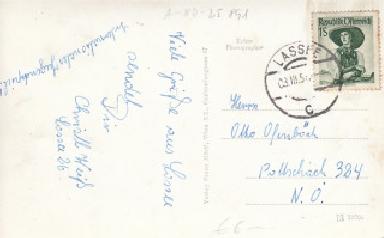 A-SD-25 PG1
Viele Grüße aus Lassee
sendet
Dir
Christl Weiß
Lassee 26
Echte
Photographie
Republik Österreich
1S
LASSEE
C
Herrn
Otto Ofenböck
Pottschach 324
N.Ö.
€6-